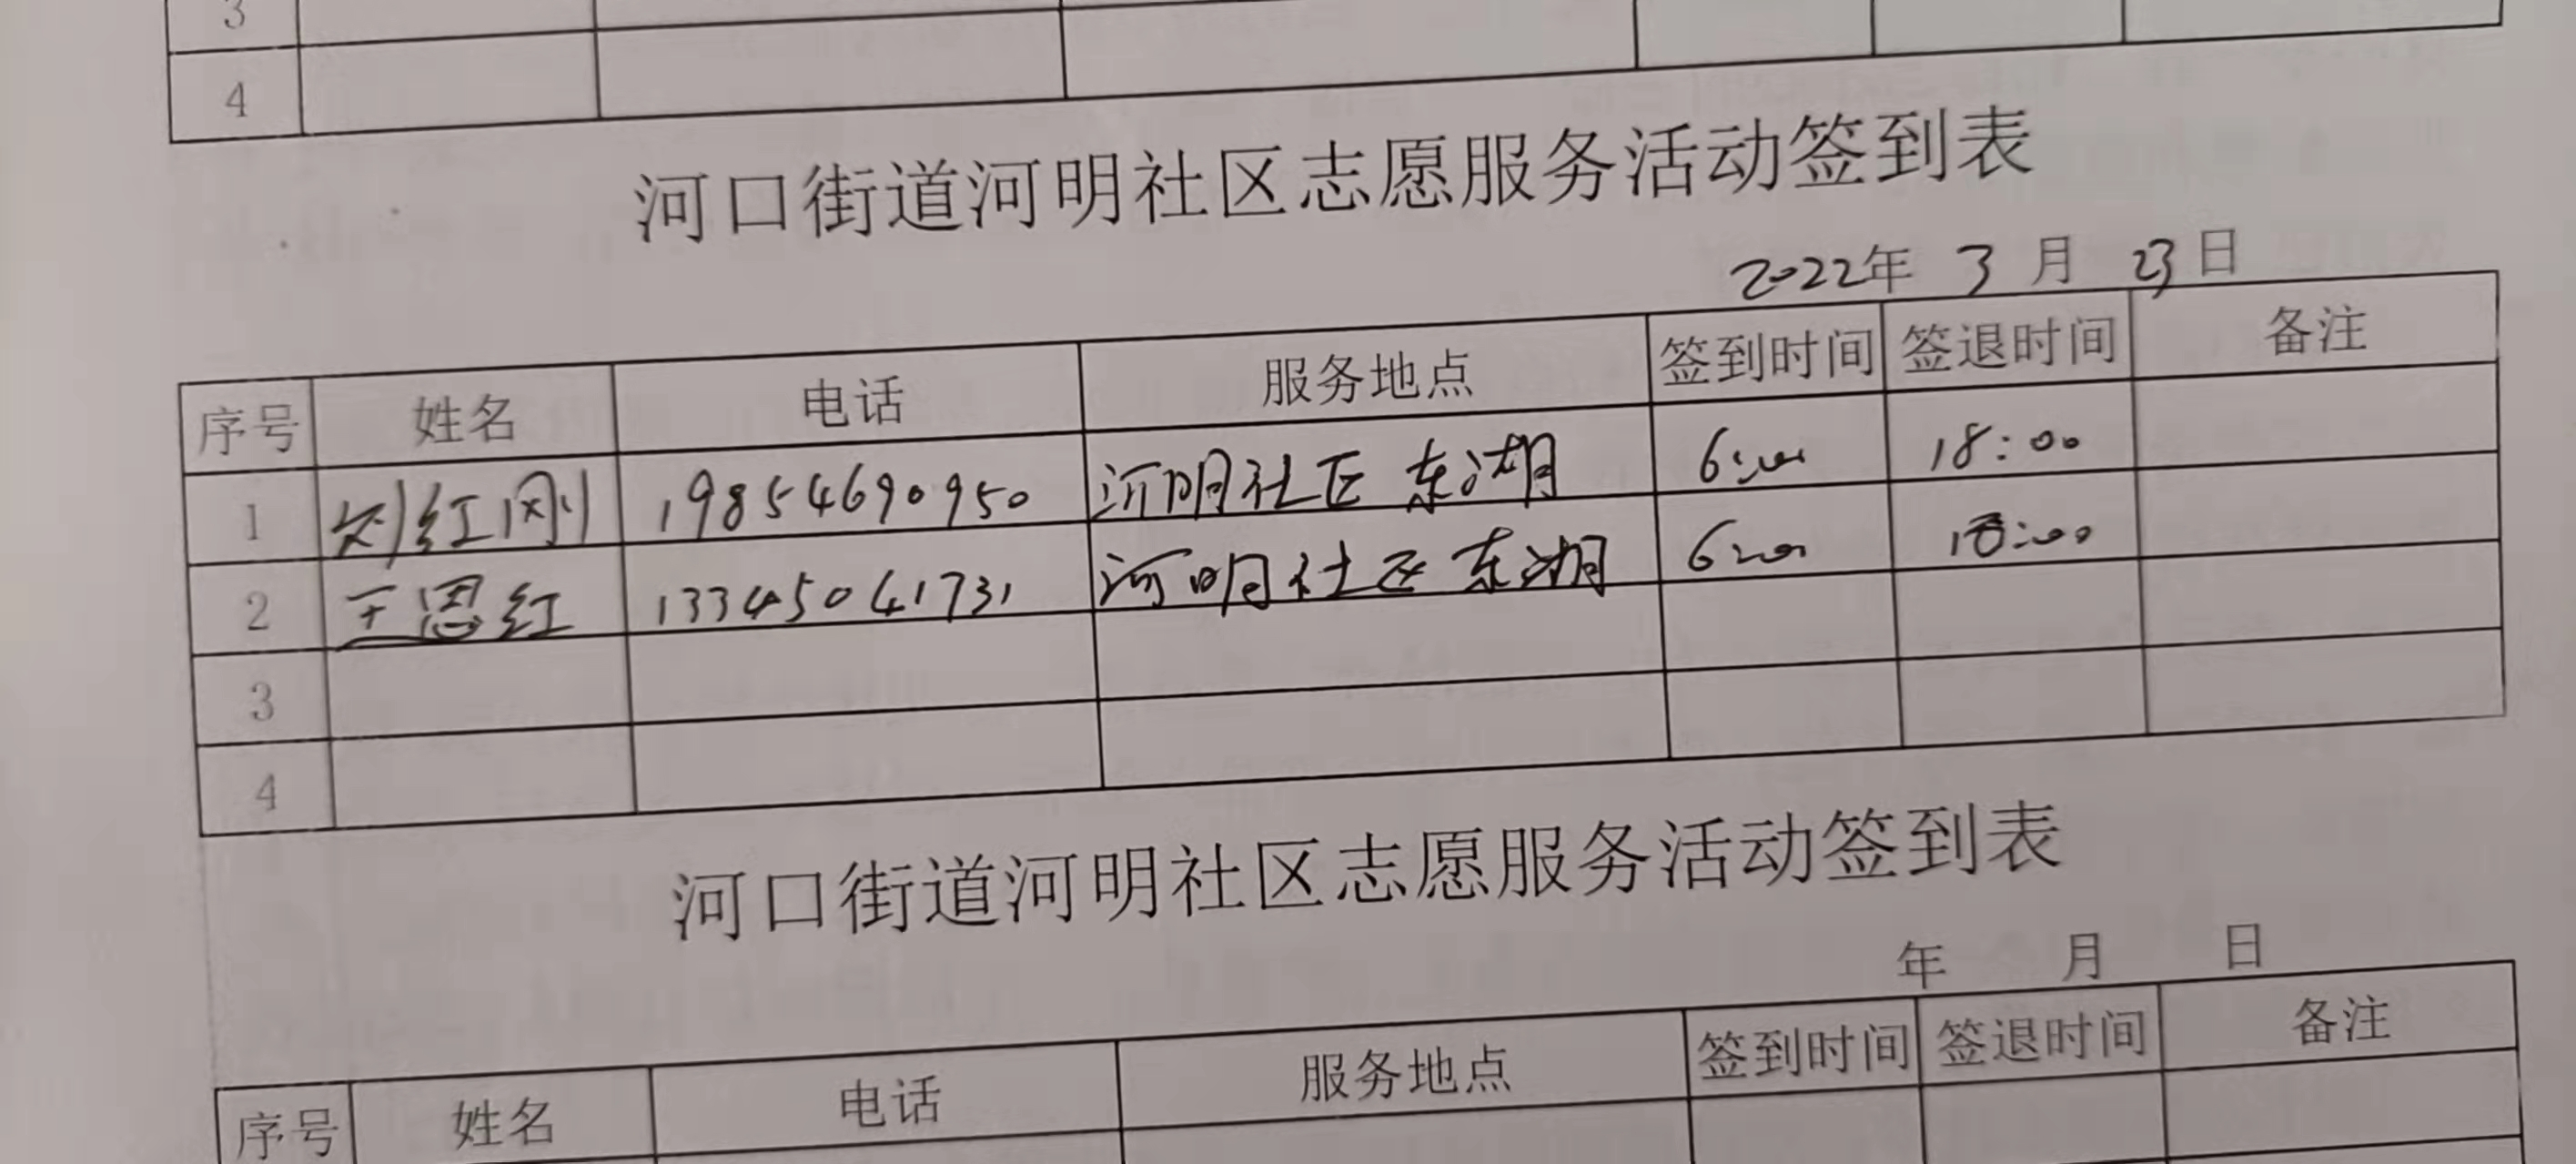 3
4
河口街道河明社区志愿服务活动签到表
2022年 3 月 23日
序号 姓名 电话 服务地点 签到时间 签退时间 备注
1 刘红刚 19854690950 河明社区东湖 6:00 18:00
2 王恩红 13345041731 河明社区东湖 6:00 18:00
3
4
河口街道河明社区志愿服务活动签到表
年 月 日
序号 姓名 电话 服务地点 签到时间 签退时间 备注